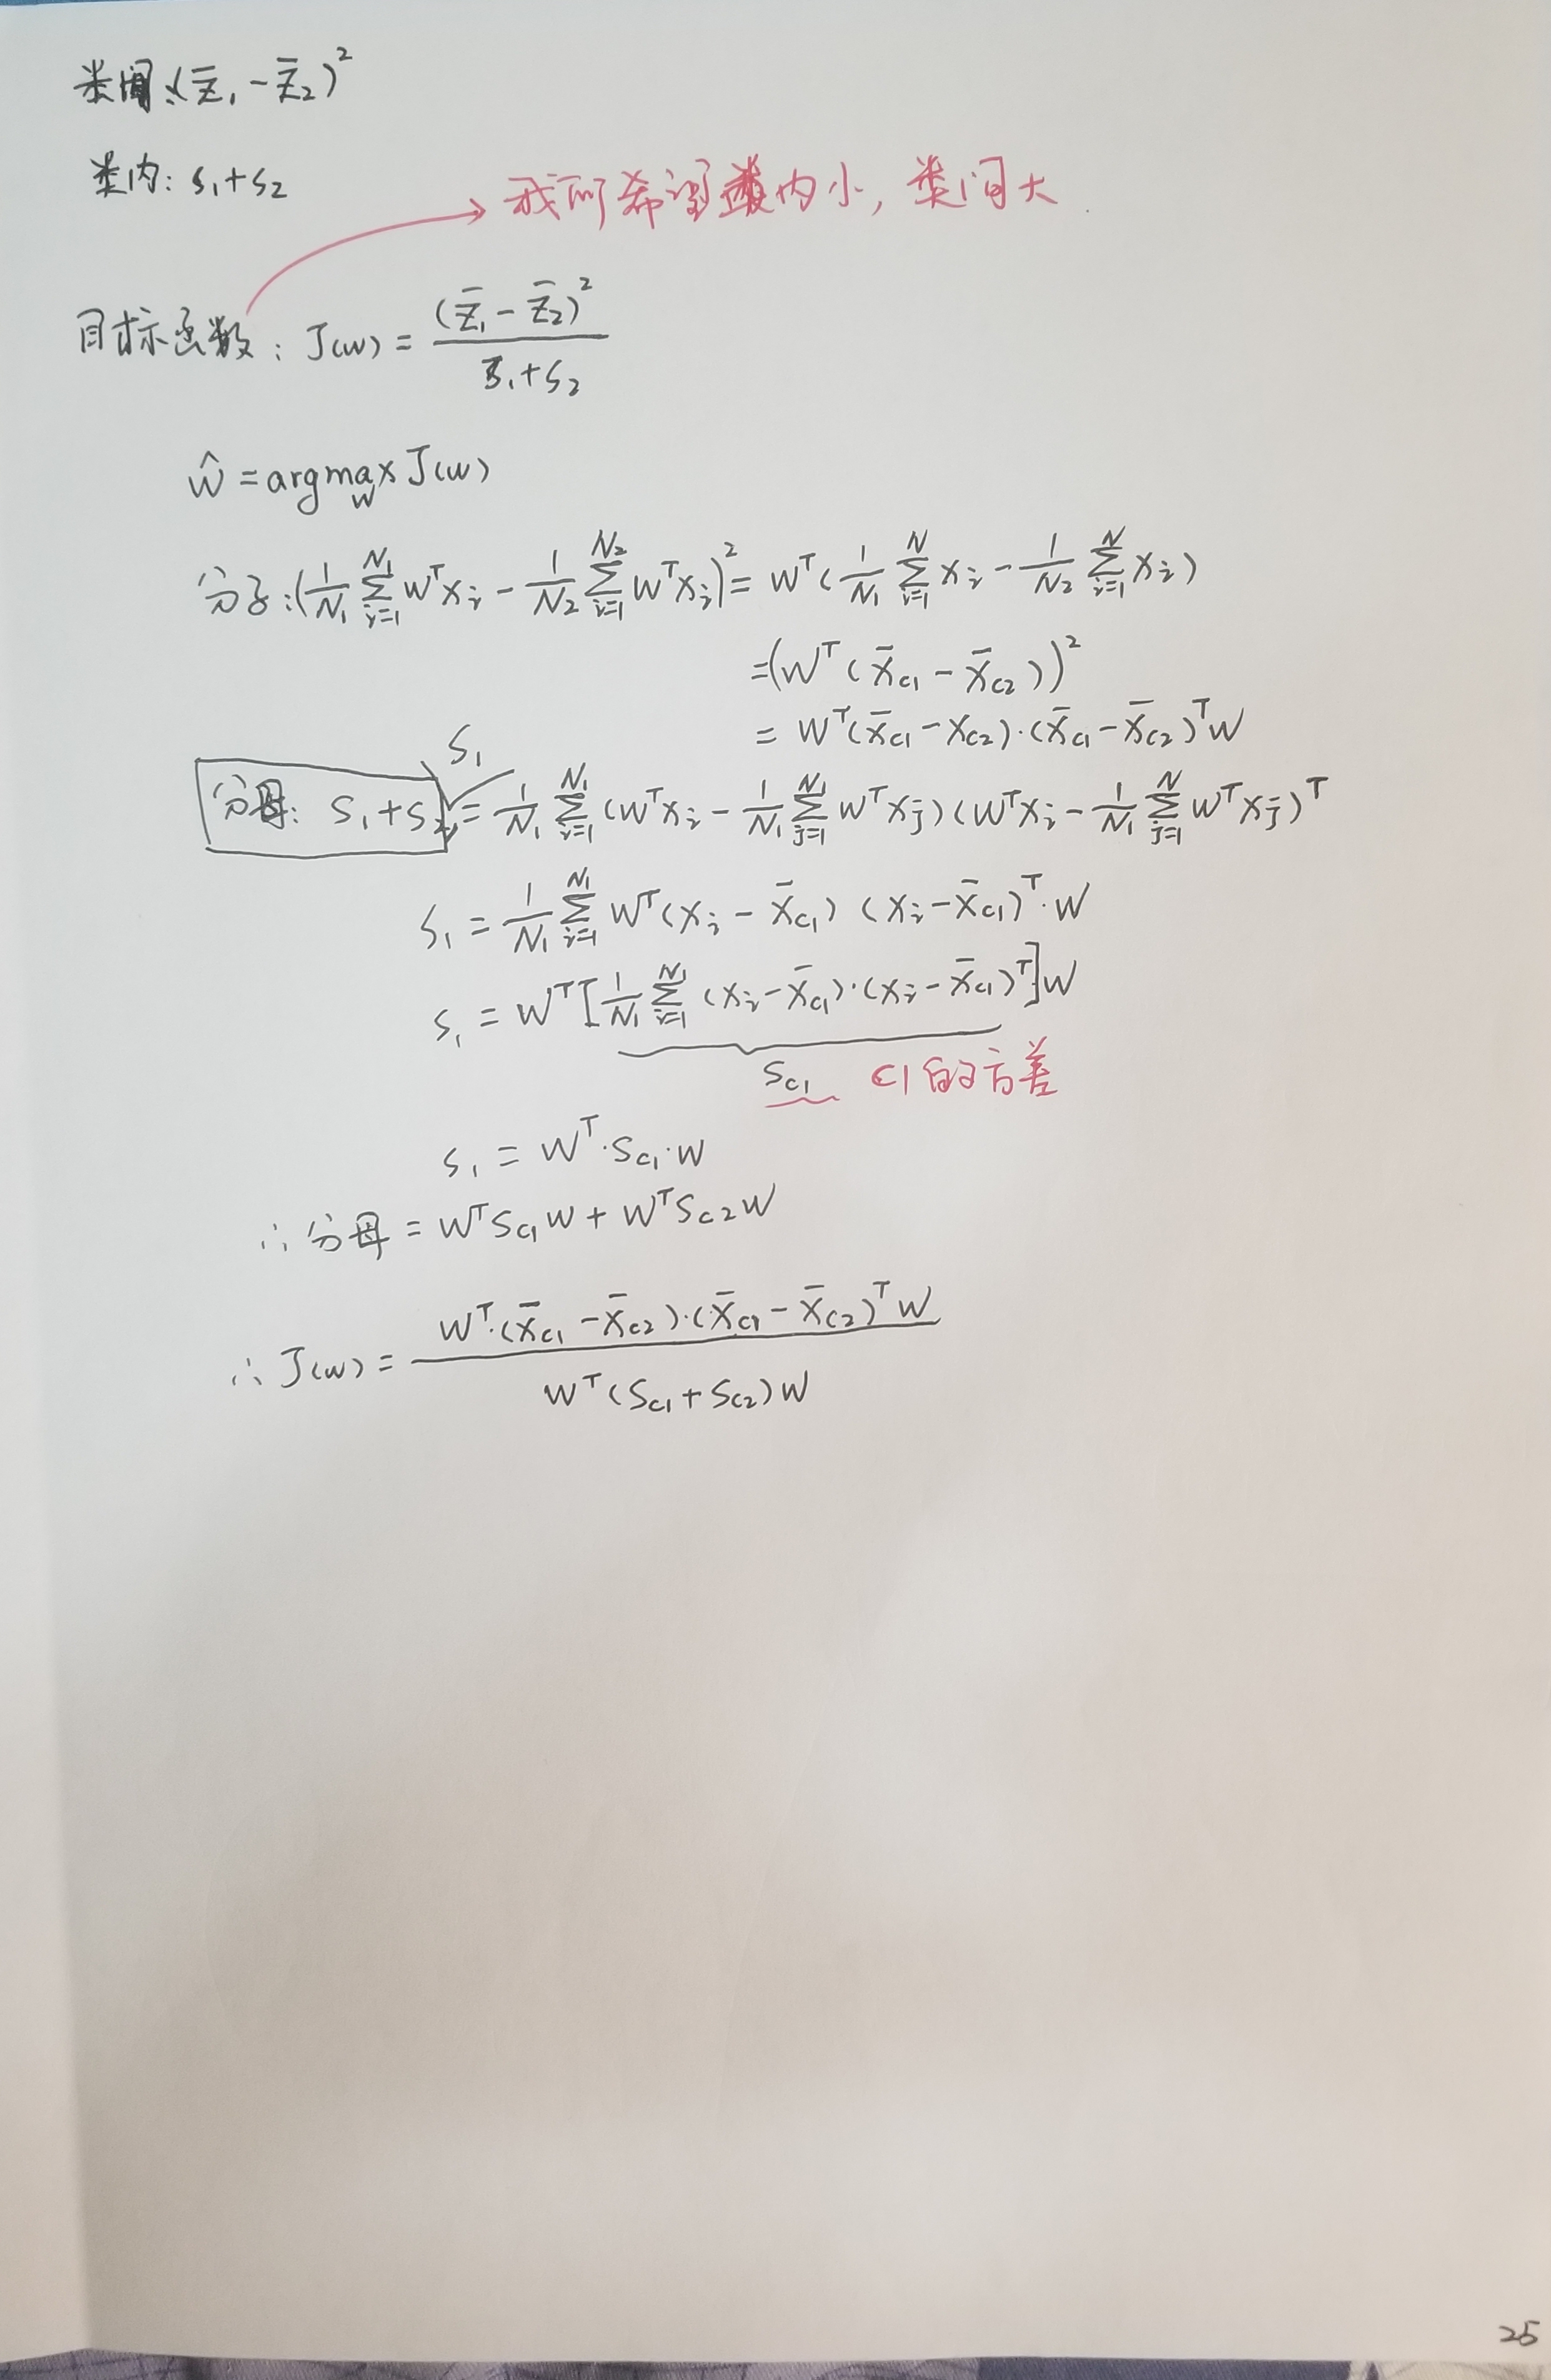 类间:(z̄₁-z̄₂)²
类内: s₁+s₂
我们希望类内小, 类间大
目标函数: J(w) = (z̄₁-z̄₂)² / s₁+s₂
ŵ = argmax_w J(w)
分子: (1/N₁ ∑_{i=1}^{N₁} wᵀxᵢ - 1/N₂ ∑_{i=1}^{N₂} wᵀxᵢ)² = wᵀ(1/N₁ ∑_{i=1}^{N} xᵢ - 1/N₂ ∑_{i=1}^{N} xᵢ)
= (wᵀ(x̄_{c1} - x̄_{c2}))²
= wᵀ(x̄_{c1} - x_{c2})·(x̄_{c1} - x̄_{c2})ᵀw
S₁
分母: s₁+s₂ = 1/N₁ ∑_{i=1}^{N₁} (wᵀxᵢ - 1/N₁ ∑_{j=1}^{N₁} wᵀxⱼ)(wᵀxᵢ - 1/N₁ ∑_{j=1}^{N} wᵀxⱼ)ᵀ
s₁ = 1/N₁ ∑_{i=1}^{N₁} wᵀ(xᵢ - x̄_{c1}) (xᵢ - x̄_{c1})ᵀ·w
s₁ = wᵀ[1/N₁ ∑_{i=1}^{N₁} (xᵢ - x̄_{c1})·(xᵢ - x̄_{c1})ᵀ]w
S_{c1} C1的方差
s₁ = wᵀ·S_{c1}·w
∴ 分母 = wᵀS_{c1}w + wᵀS_{c2}w
∴ J(w) = wᵀ·(x̄_{c1} - x̄_{c2})·(x̄_{c1} - x̄_{c2})ᵀw / wᵀ(S_{c1} + S_{c2})w
25